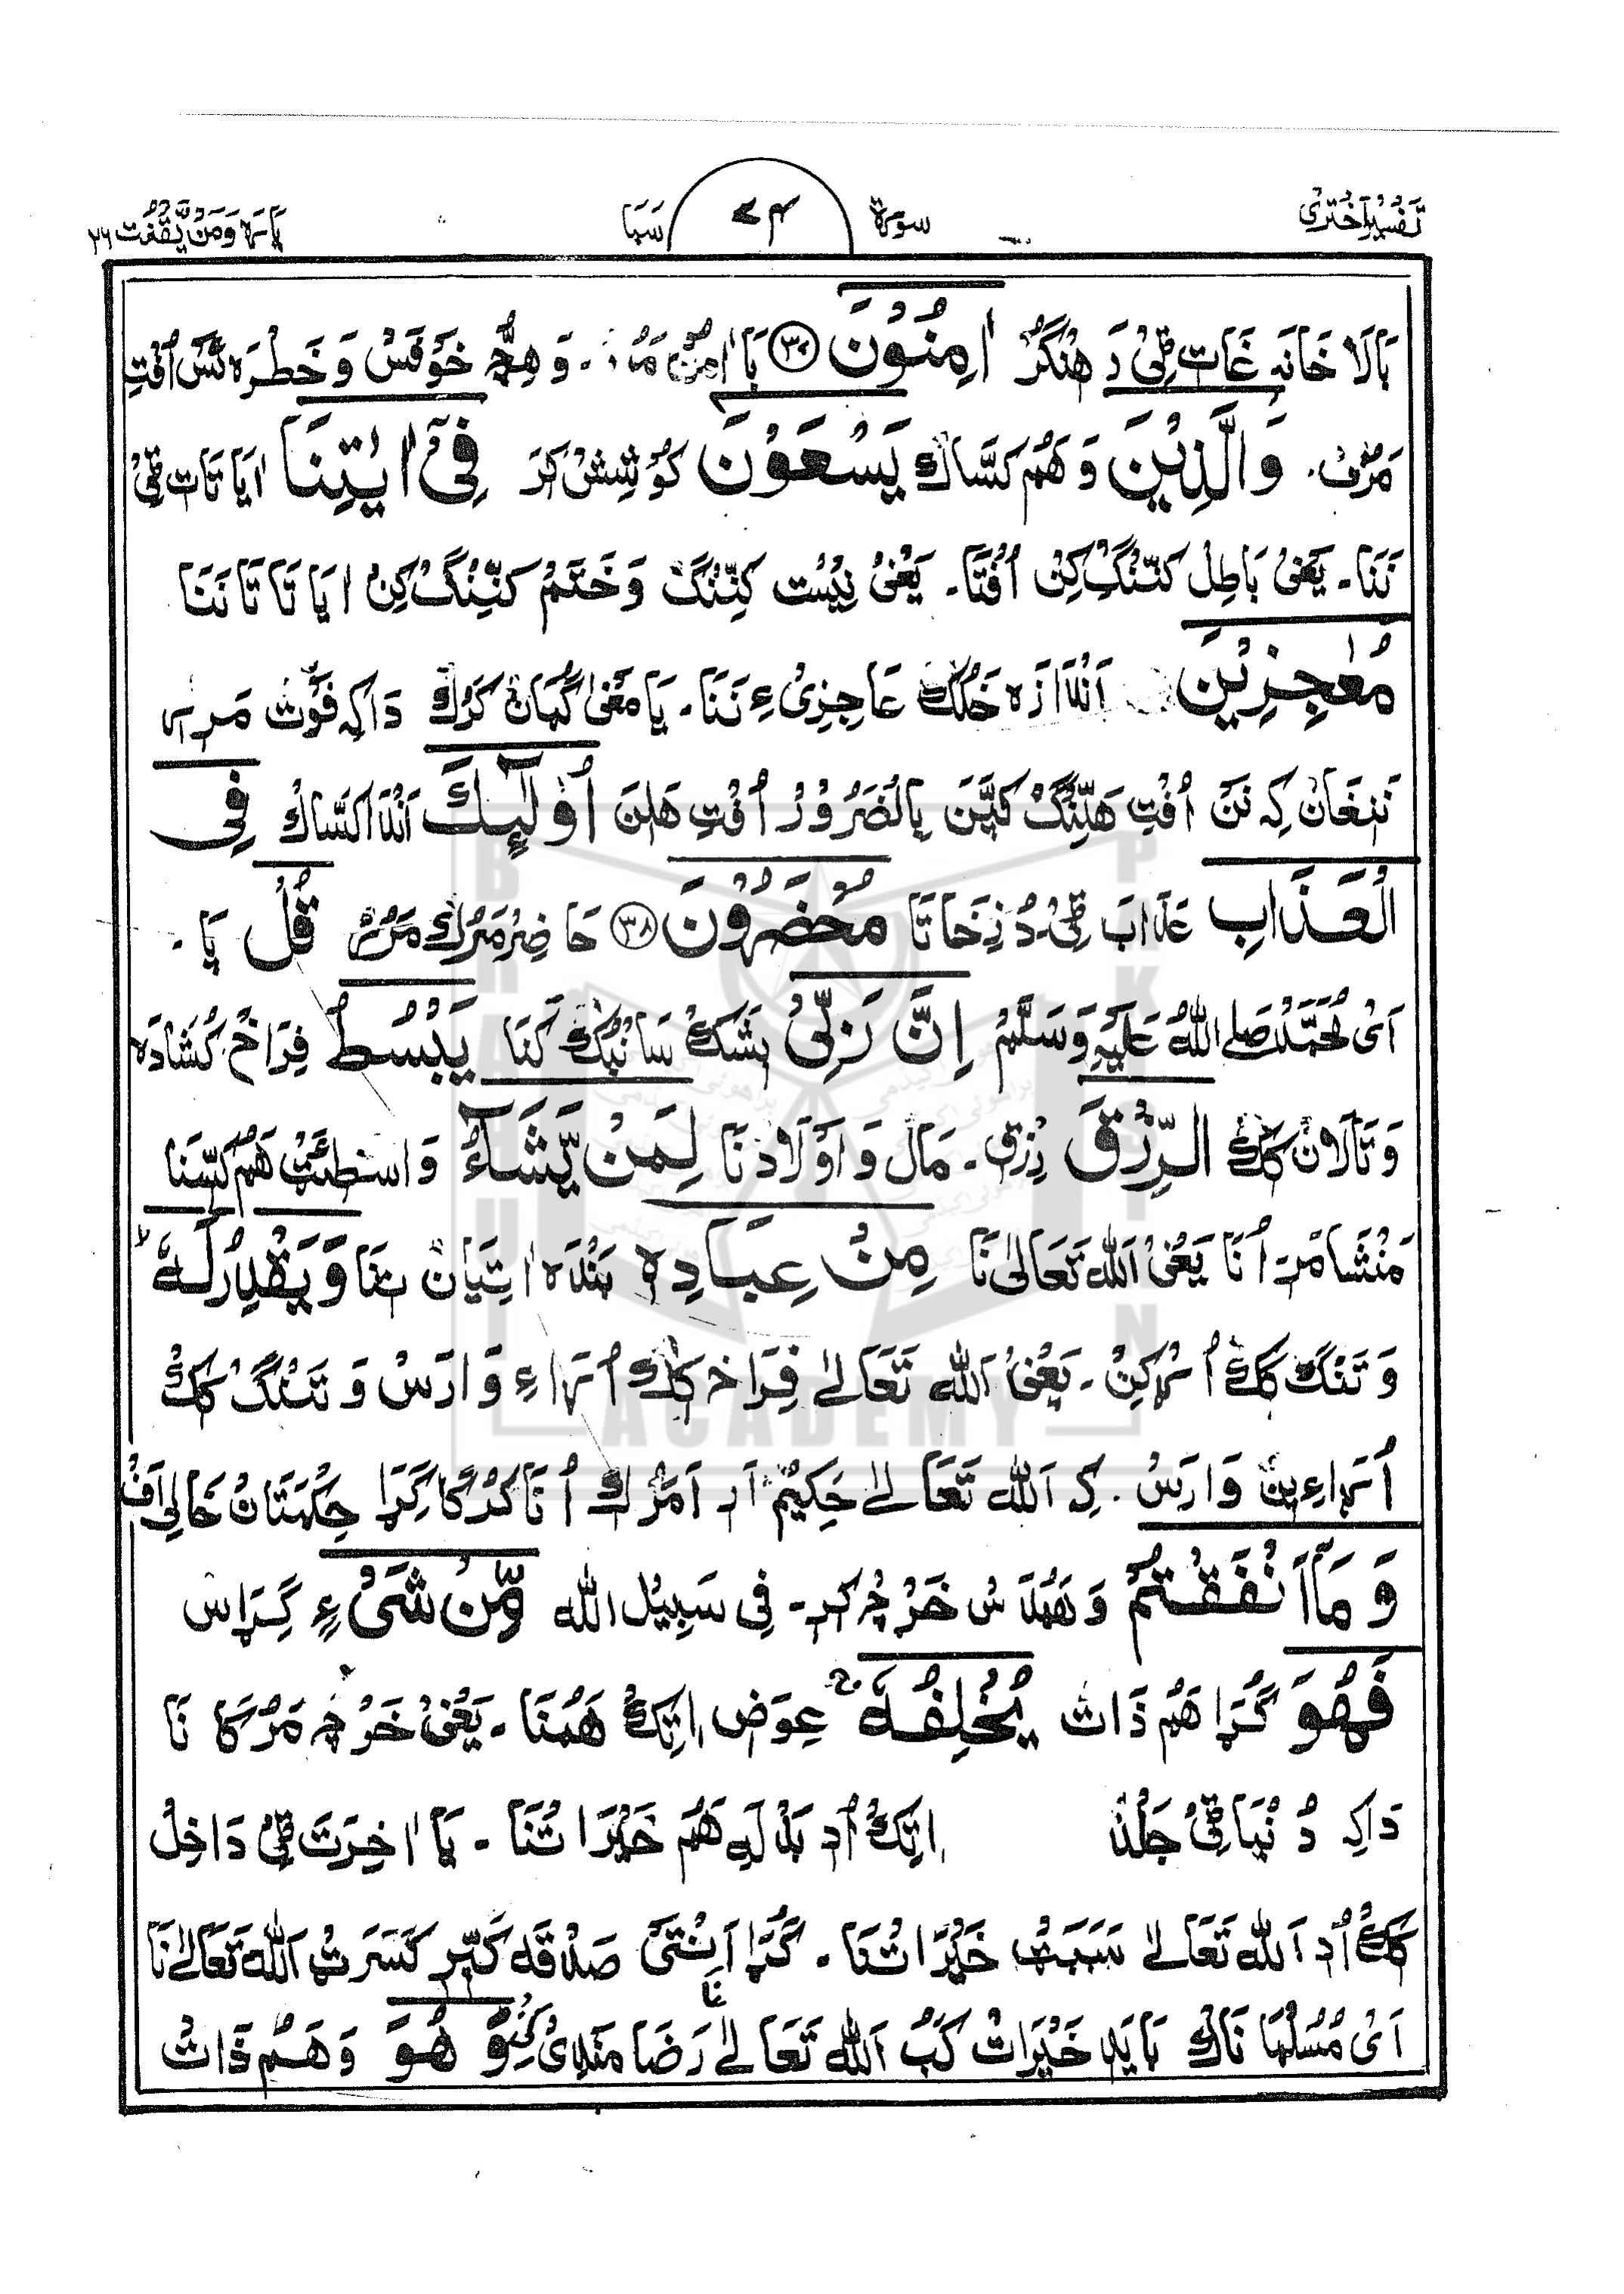 تَفسِیْرِ اَخْتَرِیْ سورة ۷۴ سَبَا پَارَہ وَمَنْ یَّقْنُتْ ۲۲
بَالَا خَانَہ غَات ٹِیْ دَ ھِنَنگُرْ اٰمِنُوْنَ ۳۷ بَا اَمْن مَرْ. وَ ھِچُّ خَوْفَسْ وَ خَطْرَہ ئَسْ اُفْتِ
مَرْف. وَالَّذِیْنَ وَ ھَم کَسَّاک یَسْعَوْنَ کُوْشِشْ کَرَ فِیْٓ اٰیٰتِنَا اٰیَاتَات ٹِیْ
نَنَا۔ یَعْنِیْ بَاطِلْ کَنِّنْگ کِنْ اُفْتَا۔ یَعْنِیْ نِیْسْت کَنِّنْگ وَ خَتَمْ کَنِّنْگ کِنْ اٰیَاتَا تَا نَنَا
مُعٰجِزِیْنَ اَنْدَازَہ خَلُکْ عَاجِزِیْ ءِ نَنَا۔ یَا مَعْنٰی گُمَان کَرُک دَاکِہ فَوْت مَرِرَہ
نَنغَان کِہ نَن اُفْتِ ھَلِّنْگ کَپَّن بِالضَّرُوْرْ اُفْتِ ھَلِن اُولٰٓئِکَ اَنْدَاکَسَّاکْ فِی
الْعَذَابِ عَذَابَ ٹِیْ دُ ذِخَاتَا مُحْضَرُوْنَ ۳۸ حَاضِرْ مَرُکْ مَرُرْ قُلْ پَا۔
اَیْ مُحَمَّدْ صَلَی اللّٰهُ عَلَیْهِ وَسَلَّمْ اِنَّ رَبِّیْ بِشَکْ سَائِبُک کَنَا یَبْسُطُ فِرَاخْ کُشَادَہ
وَ تَالَان کَک الرِّزْقَ رِزْق۔ مَال وَ اَوْلَاد نَا لِمَنْ یَّشَآءُ وَاسْطَئَٹ ھَم کَسَّنَا
مَنْشَا مَرِ اُنَا یَعْنِیْ اَللّٰه تَعَالٰی نَا مِنْ عِبَادِہٖ بَنْدَہ اتِیَان تِنَا وَ یَقْدِرُ لَهٗ ط
وَ تَنْک کَک اُرَا کِنْ۔ یَعْنِیْ اَللّٰه تَعَالٰے فِرَاخ کَک اُرَاءِ وَارَسْ وَ تَنْگ کَک
اُرَاءِیِن وَارَسْ۔ کِہ اَللّٰه تَعَالٰے حَکِیْم اَر اَمَرْ ک اُنَا کُرْ گَاگِرَا حِکْمَتَان خَالِی اَفْ
وَمَآ اَنْفَقْتُمْ وَ ھَنْدَ س خَرْچ کرِ۔ فِی سَبِیْل اللّٰه مِّنْ شَیْءٍ گِرَاس
فَهُوَ گُرَا ھَم ذَات یُخْلِفُهٗ ج عِوَض اِتِک ھَمْنَا۔ یَعْنِیْ خَرْچ مَرُکَا نَا
دَاکِہ دُنْیَاٹِیْ جَلْد اِتِک اُدِ بَدْلَہ ھَم خَیْرَاتْنَا۔ یَا اٰخِرَت ٹِیْ دَاخِلْ
کَک اُدِ اَللّٰه تَعَالٰے سَبَبَٹ خَیْرَاتْنَا۔ گُرَا اَنْتَئ صَدْقَه کَپِّرِ کَسَرَٹ اَللّٰه تَعَالٰے نَا
اَیْ مُسْلُمَا نَاک بَایَد خَیْرَات کَبْ اَللّٰه تَعَالٰے نَا رَضَامَنْدِیْ کِنْ وَ هُوَ وَ ھَم ذَات
BRAHUI ACADEMY PAKISTAN